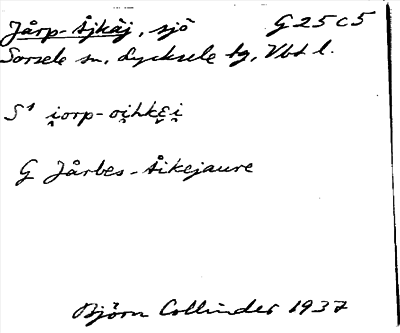 Jårp-åjkåj, sjö G 25 c 5
Sorsele sn, Lycksele tg, Vbt l.
S¹ i̯orp-oi̯hkɛ̮i̯
G Jårbes-åikejaure
Björn Collinder 1937